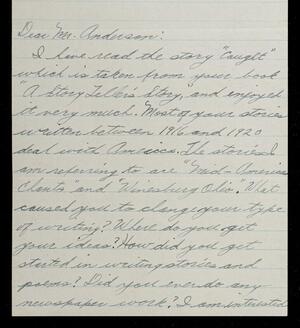 Dear Mr. Anderson:
I have read the story "Caught"
which is taken from your book
"A Story Teller's Story," and enjoyed
it very much. Most of your stories
written between 1916 and 1920
deal with America. The stories I
am referring to are "Mid-America
Chants" and "Winesburg Ohio." What
caused you to change your type
of writing? Where do you get
your ideas? How did you get
started in writing stories and
poems? Did you ever do any
newspaper work? I am interested